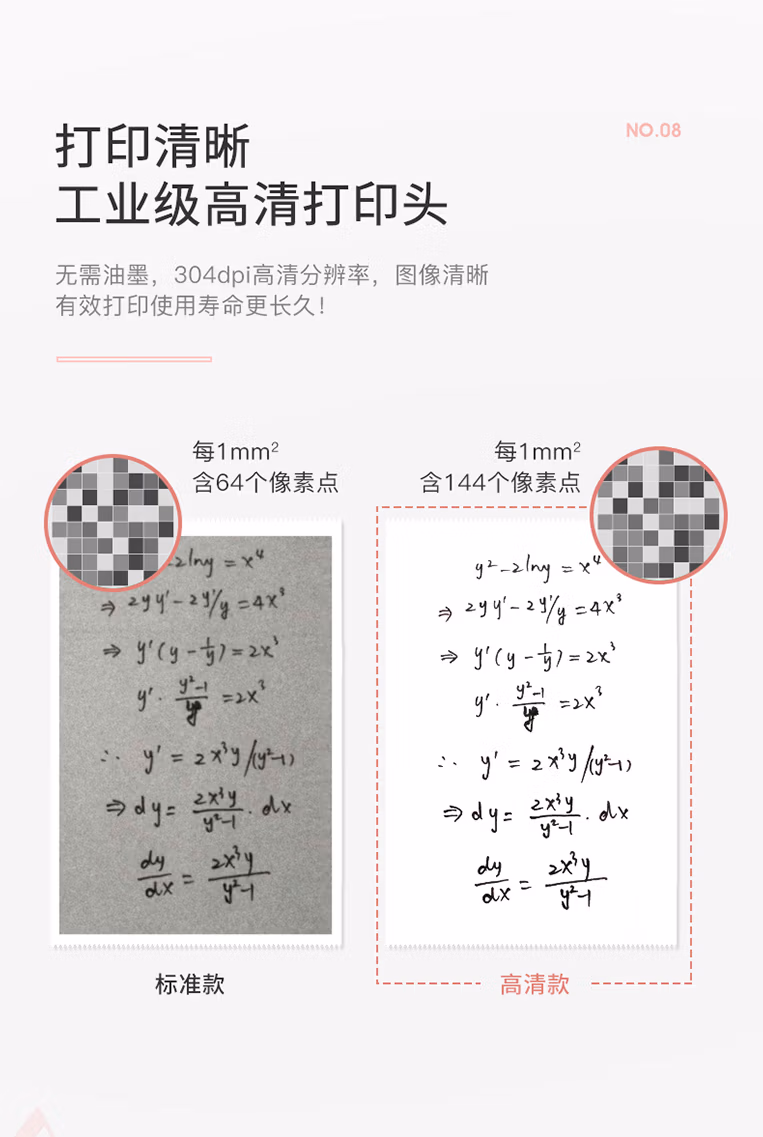 打印清晰
NO.08
工业级高清打印头
无需油墨，304dpi高清分辨率，图像清晰
有效打印使用寿命更长久！
每1mm²
含64个像素点
-2lny = x⁴
⇒ 2yy' - 2y'/y = 4x³
⇒ y'(y - 1/y) = 2x³
y' · (y²-1)/y = 2x³
∴ y' = 2x³y/(y²-1)
⇒ dy = 2x³y/(y²-1) · dx
dy/dx = 2x³y/(y²-1)
标准款
每1mm²
含144个像素点
y² - 2lny = x⁴
⇒ 2yy' - 2y'/y = 4x³
⇒ y'(y - 1/y) = 2x³
y' · (y²-1)/y = 2x³
∴ y' = 2x³y/(y²-1)
⇒ dy = 2x³y/(y²-1) · dx
dy/dx = 2x³y/(y²-1)
高清款